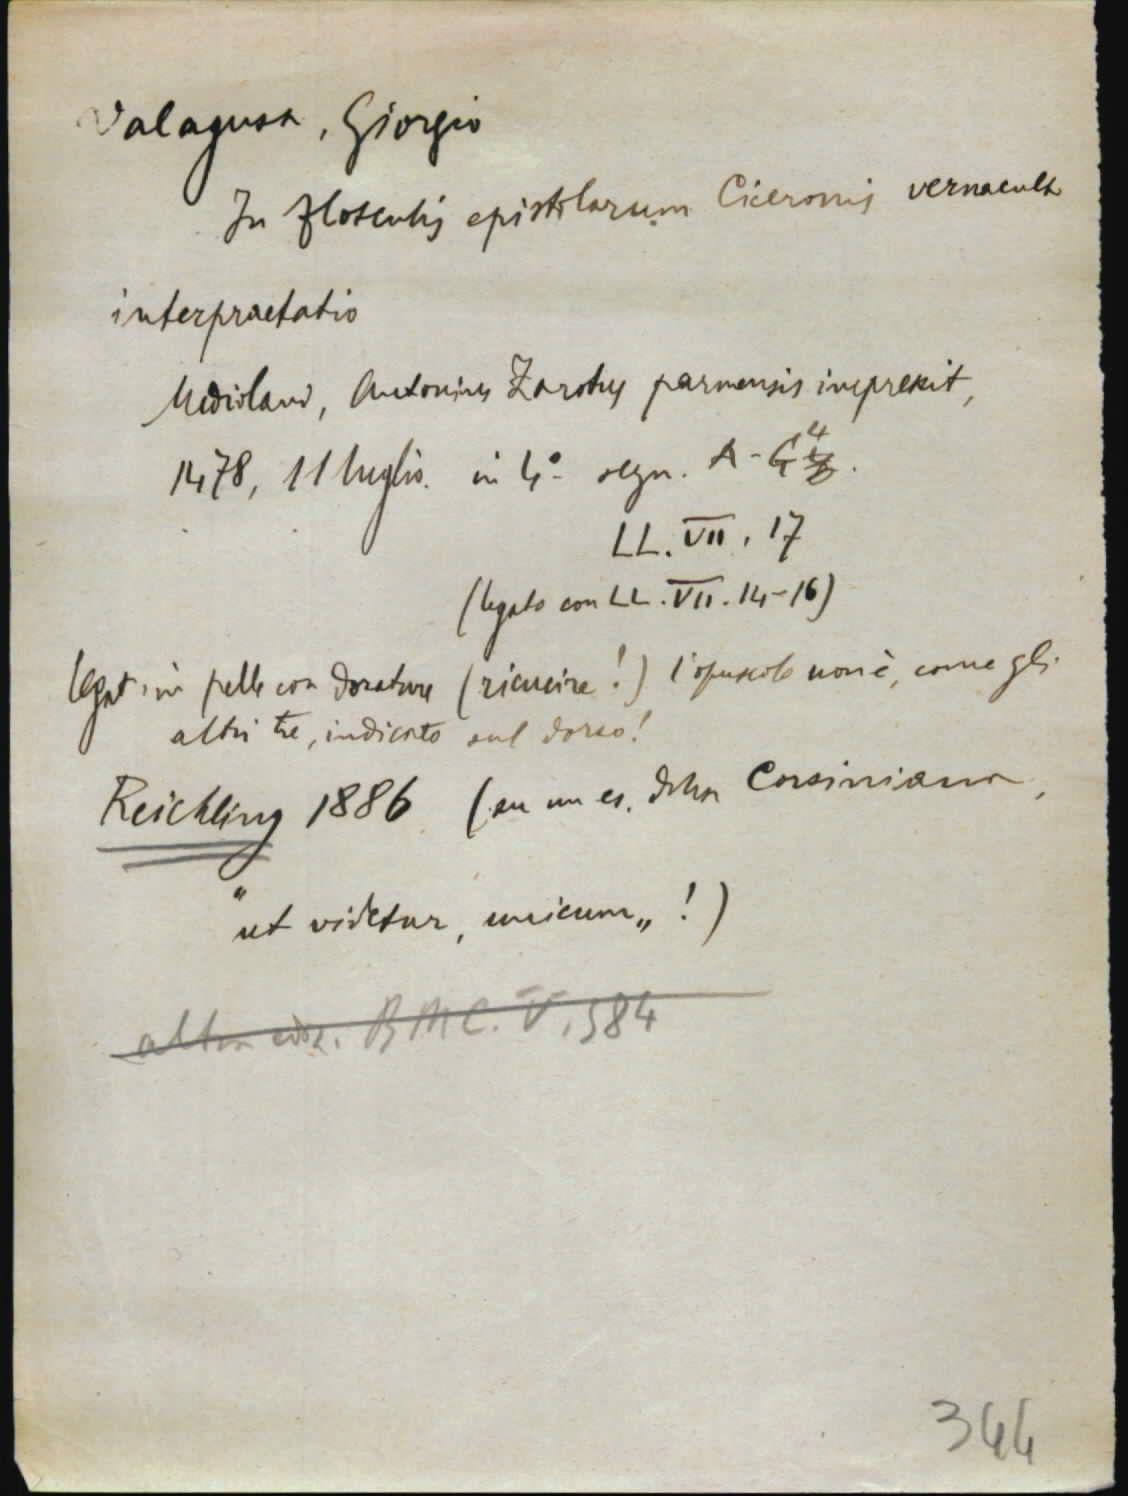 Valagusa, Giorgio
In flosculis epistolarum Ciceronis vernacula
interpraetatio
Mediolani, Antonius Zarotus parmensis impressit,
1478, 11 luglio. in 4º segn. A-G⁴
LL. VII. 17
(legato con LL. VII. 14-16)
legat. in pelle con dorature (ricucire!) l'opuscolo non è, come gli
altri tre, indicato sul dorso!
Reichling 1886 (su un es. della Corsiniana,
"ut videtur, unicum„!)
altra ediz. BMC. V, 984
344